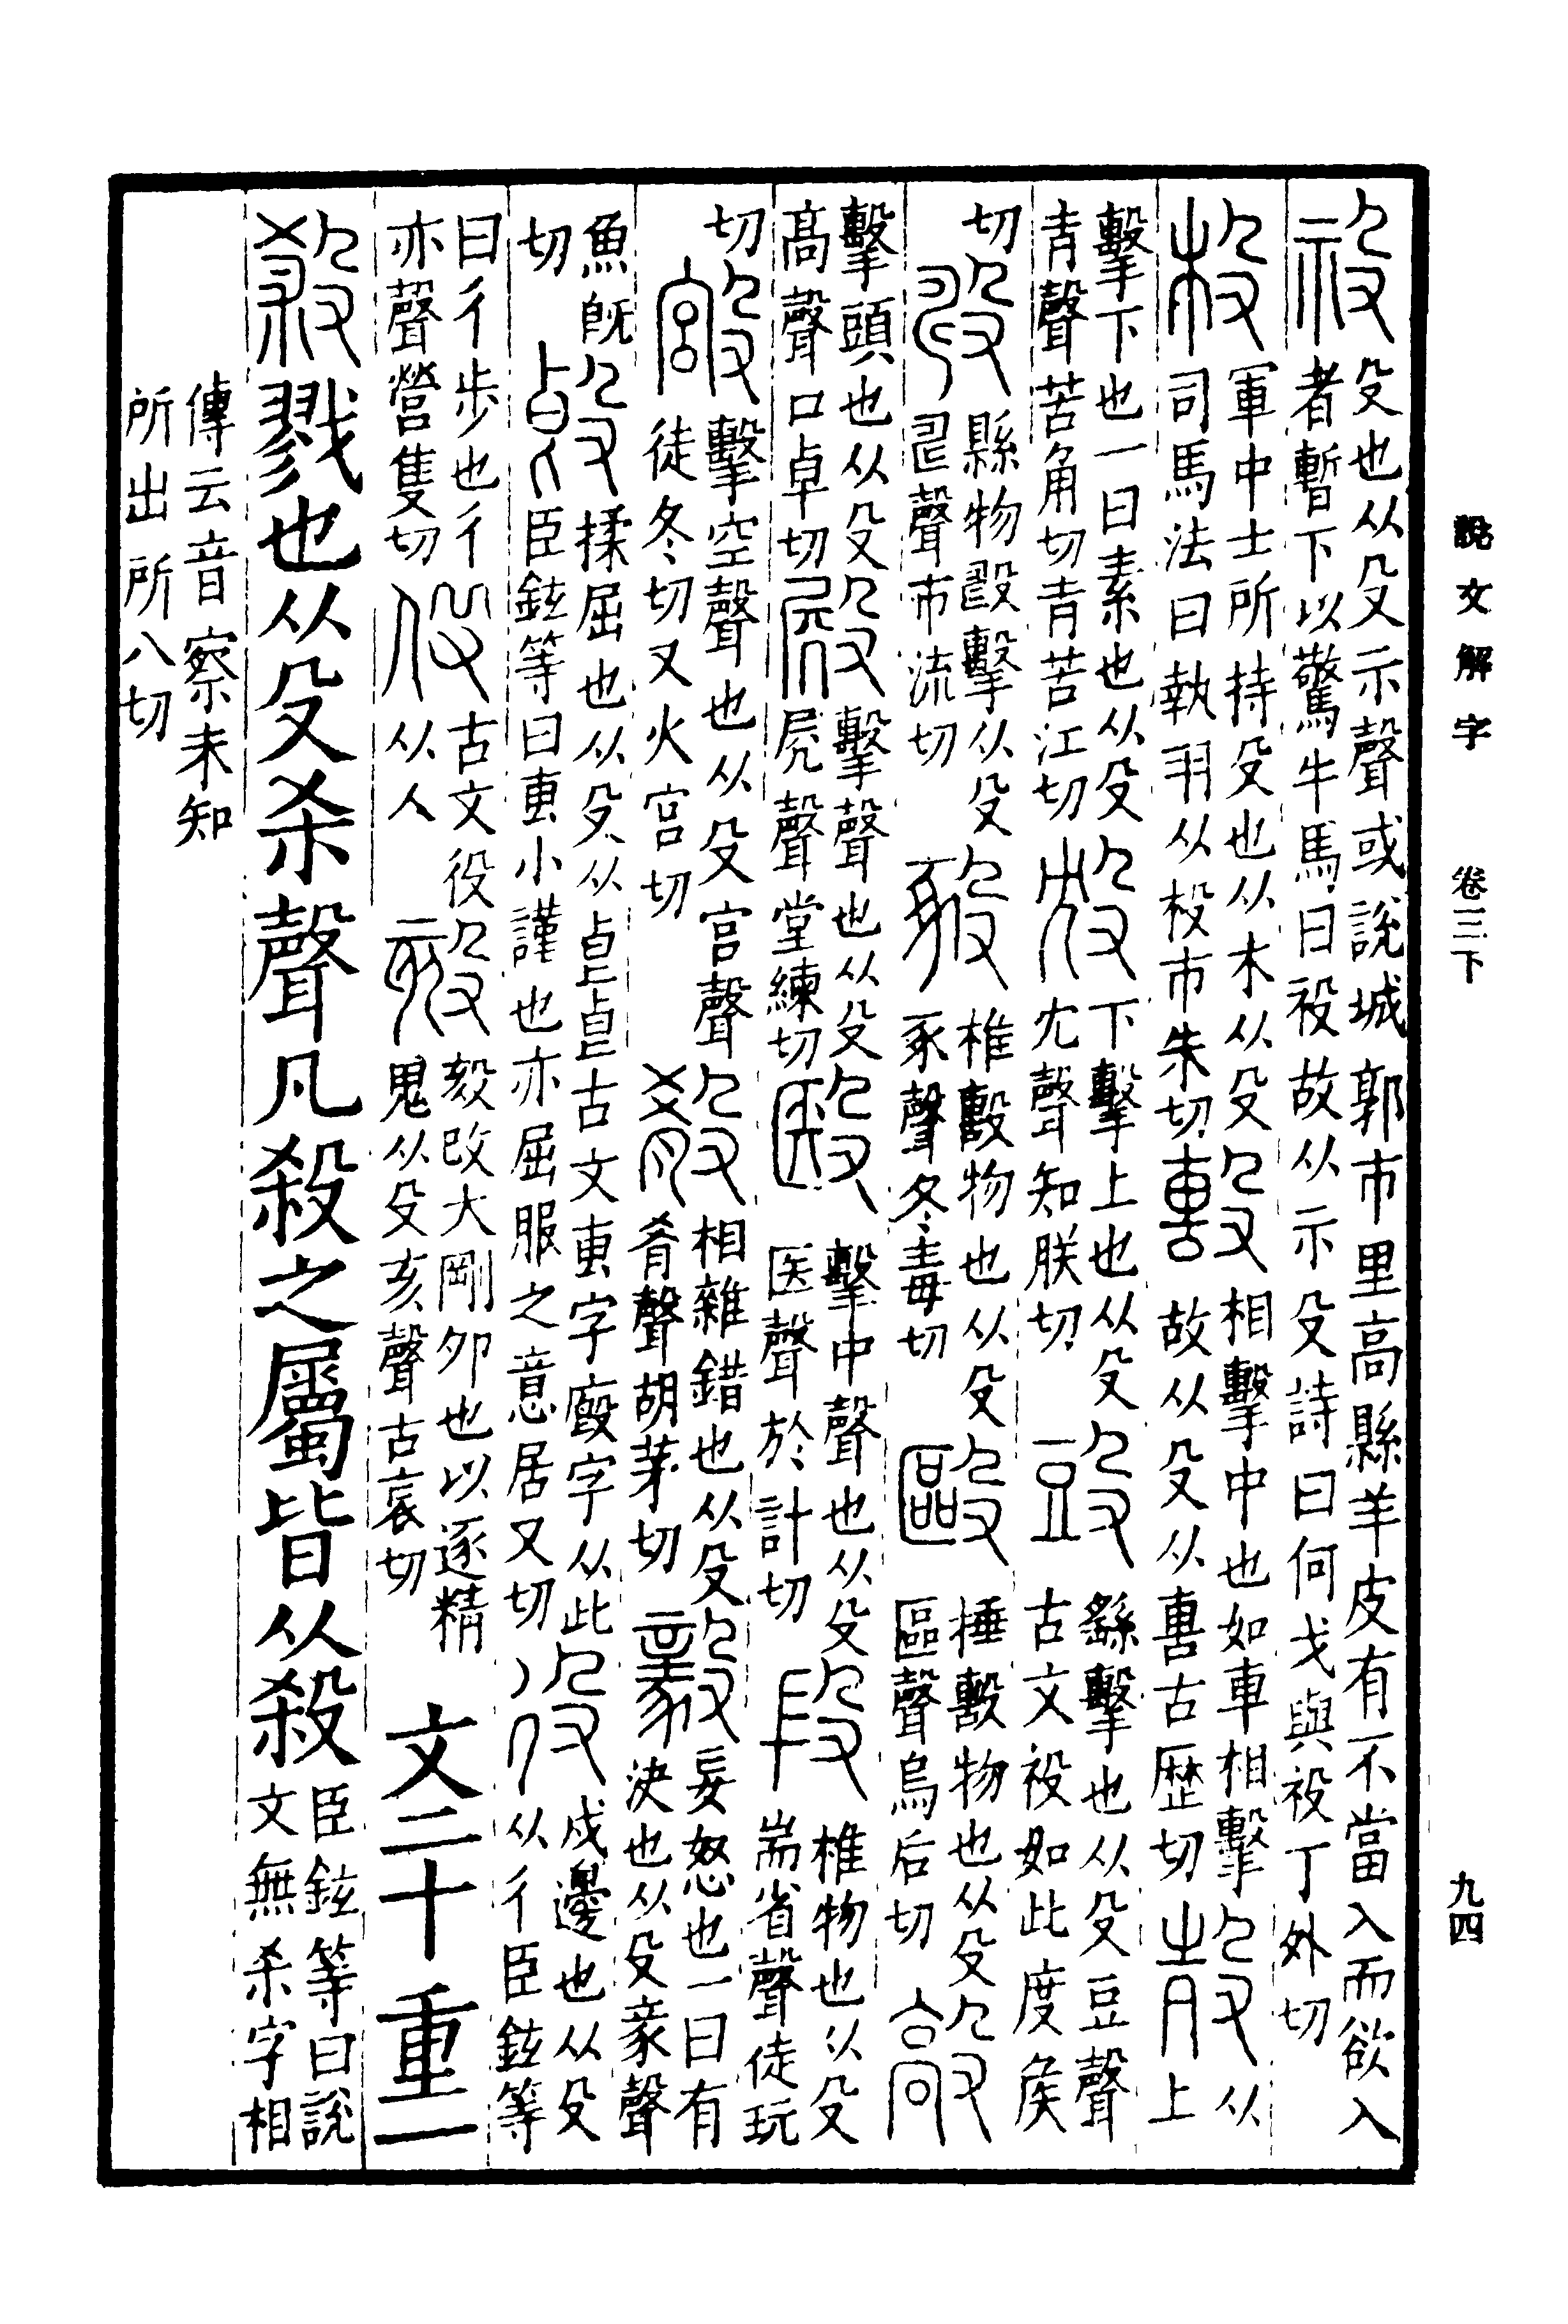 說文解字 卷三下 九四
祋 殳也从殳示聲或說城郭市里高縣羊皮有不當入而欲入者暫下以驚牛馬曰祋故从示殳詩曰何戈與祋丁外切
杸 軍中士所持殳也从木从殳司馬法曰執羽从杸市朱切 毄 相擊中也如車相擊故从殳从軎古歷切 㱿 从上
擊下也一曰素也从殳青聲苦角切青苦江切 㱽 下擊上也从殳冘聲知朕切 㪷 繇擊也从殳豆聲古文祋如此度矦
切 縣物擊从殳聲市流切 椎毄物也从殳豖聲冬毒切 毆 捶毄物也从殳區聲烏后切 毃
擊頭也从殳高聲口卓切 殿 擊聲也从殳𡱂聲堂練切 殹 擊中聲也从殳医聲於計切 段 椎物也从殳耑省聲徒玩
切 擊空聲也从殳宮聲徒冬切又火宮切 殽 相雜錯也从殳肴聲胡茅切 毅 妄怒也一曰有決也从殳豙聲
魚旣切 𣪘 揉屈也从殳从皀皀古文叀字廏字从此臣鉉等曰叀小謹也亦屈服之意居又切 役 戍邊也从殳从彳臣鉉等
曰彳步也彳亦聲營隻切 伇 古文役从人 㱾 㱾改大剛卯也以逐精鬼从殳亥聲古哀切 文二十 重一
殺 戮也从殳杀聲凡殺之屬皆从殺 臣鉉等曰說文無杀字相
傳云音察未知所出所八切